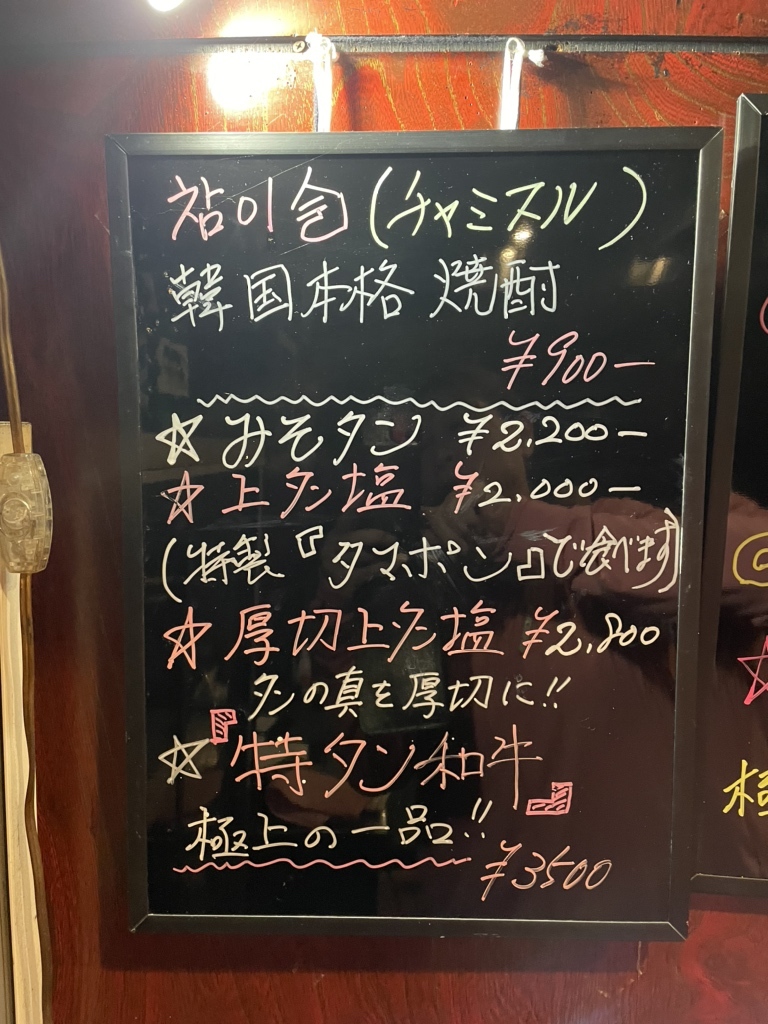 참이슬(チャミスル)
韓国本格焼酎
¥900ー
☆みそタン ¥2.200ー
☆上タン塩 ¥2.000ー
(特製『タマポン』で食べます)
☆厚切上タン塩 ¥2.800
タンの真を厚切に!!
☆『特タン和牛』
極上の一品!!
¥3500